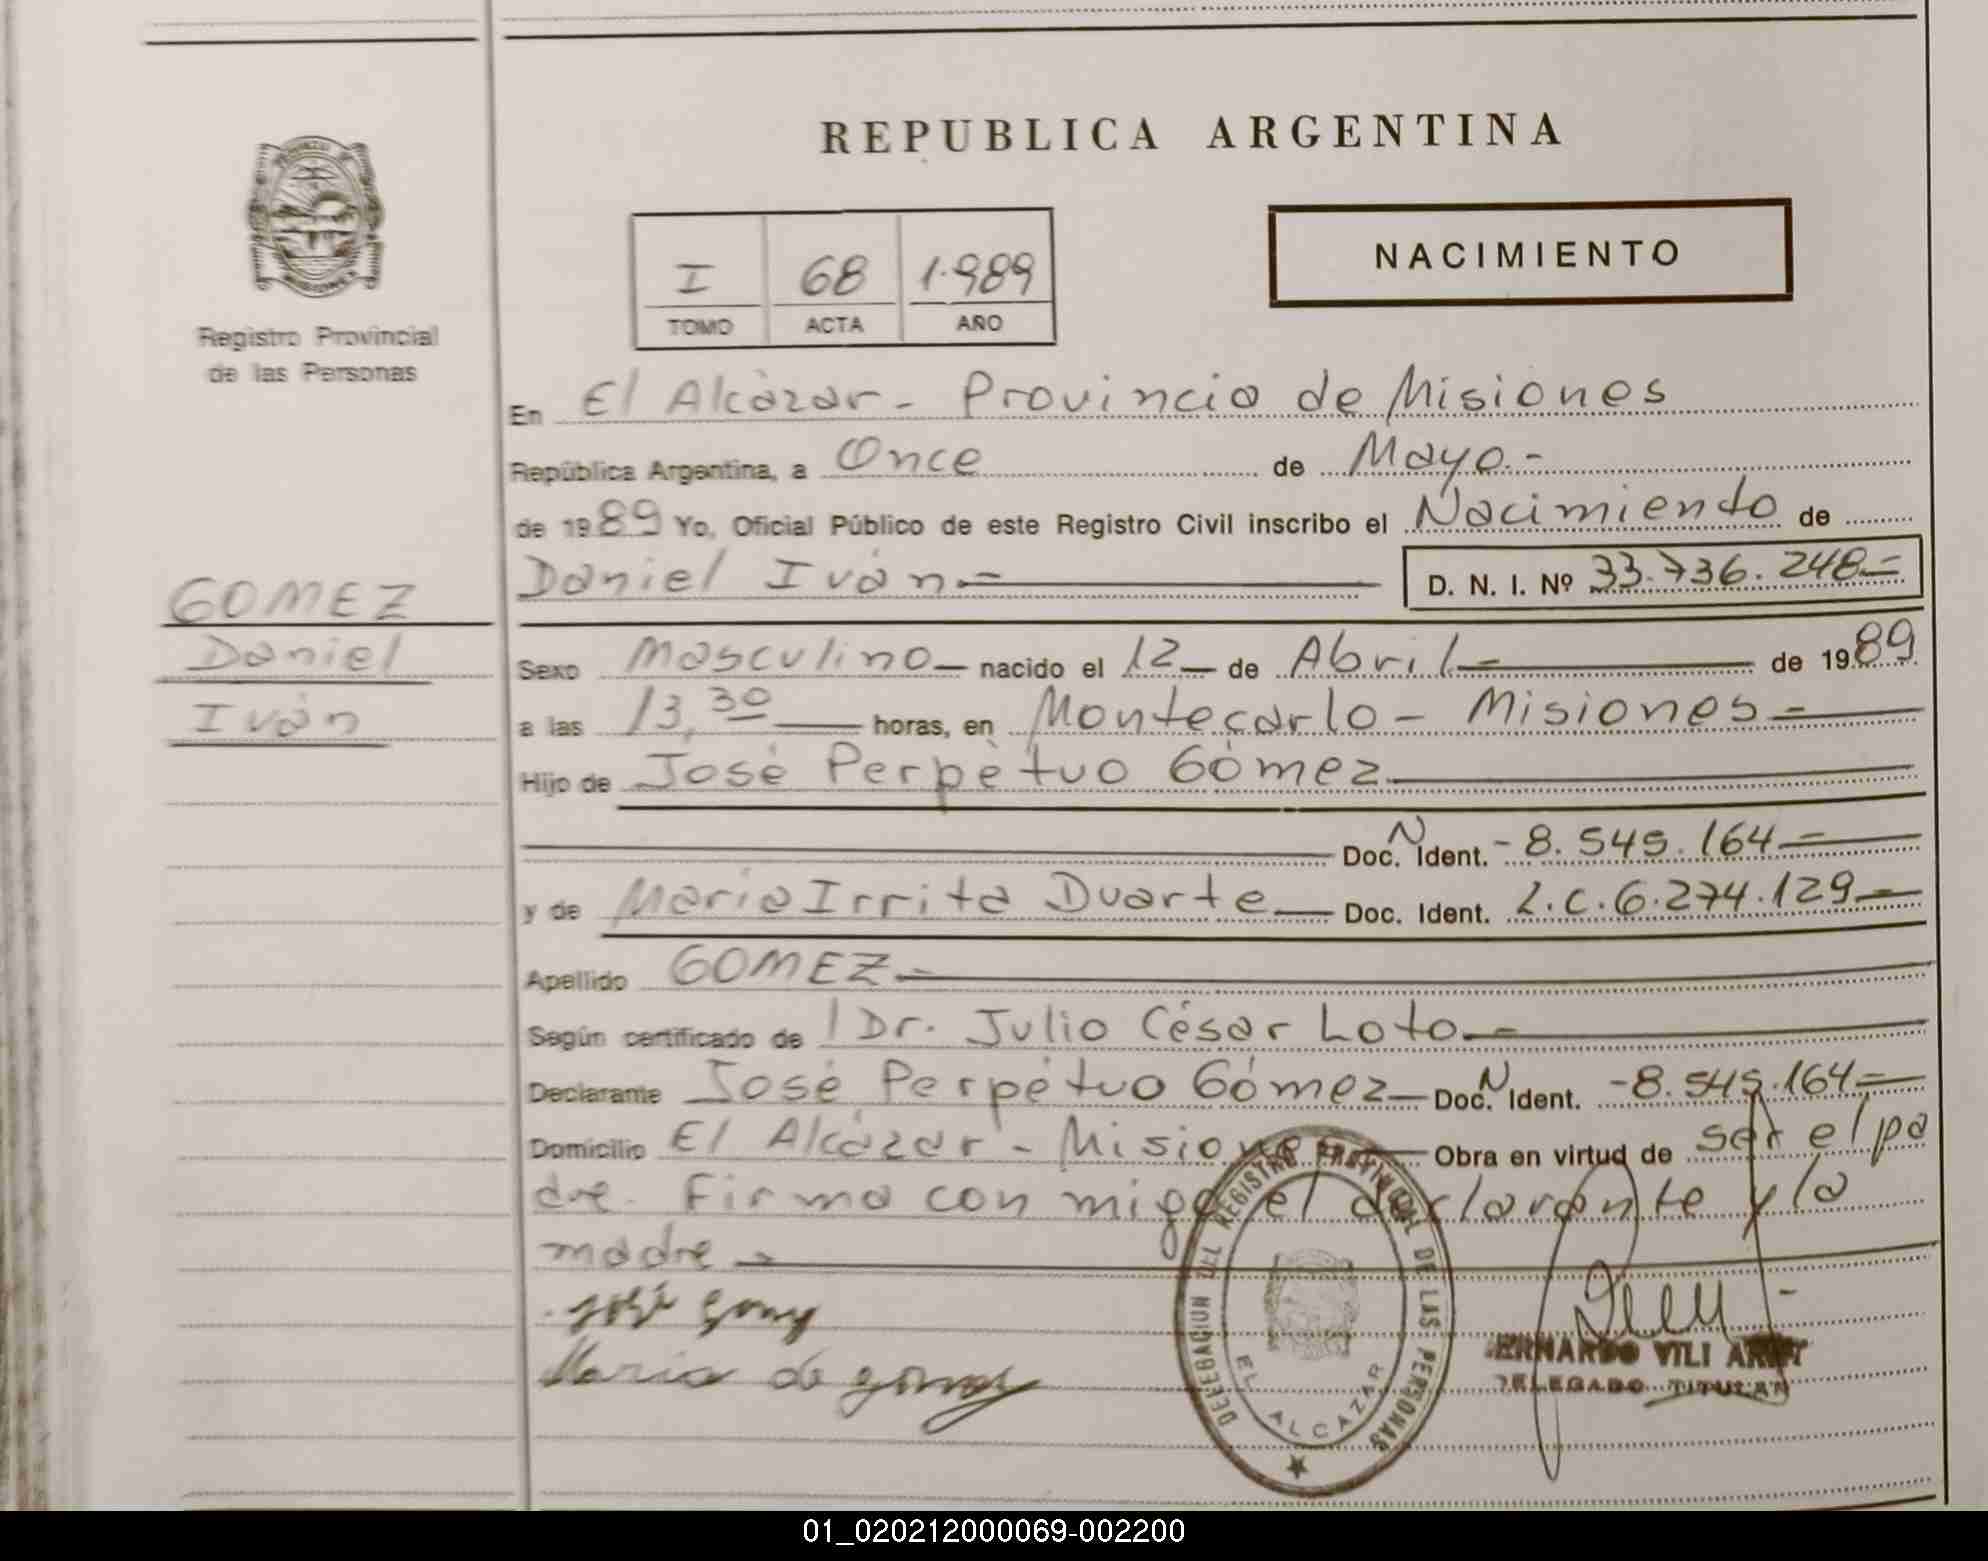 REPUBLICA ARGENTINA
NACIMIENTO
I 68 1.989
TOMO ACTA AÑO
Registro Provincial
de las Personas
En El Alcázar - Provincia de Misiones
República Argentina, a Once de Mayo.-
de 1989 Yo, Oficial Público de este Registro Civil inscribo el Nacimiento de
Daniel Iván.- D. N. I. Nº 33.736.248=
GOMEZ
Daniel
Iván
Sexo Masculino - nacido el 12 - de Abril - de 1989
a las 13,30 horas, en Montecarlo - Misiones -
Hijo de José Perpétuo Gómez
Doc. N Ident. - 8.545.164 =
y de María Irrita Duarte - Doc. Ident. L.C.6.274.129 =
Apellido GOMEZ -
Según certificado de l Dr. Julio César Loto -
Declarante José Perpétuo Gómez - Doc. N Ident. - 8.545.164 =
Domicilio El Alcázar - Misiones - Obra en virtud de ser el pa
dre. Firma con migo el declarante y la
madre -
José Gomez
Maria de gomez
DELEGACION DEL REGISTRO PROVINCIAL DE LAS PERSONAS
EL ALCAZAR
ERNARDO VILI
DELEGADO TITULAR
01_020212000069-002200